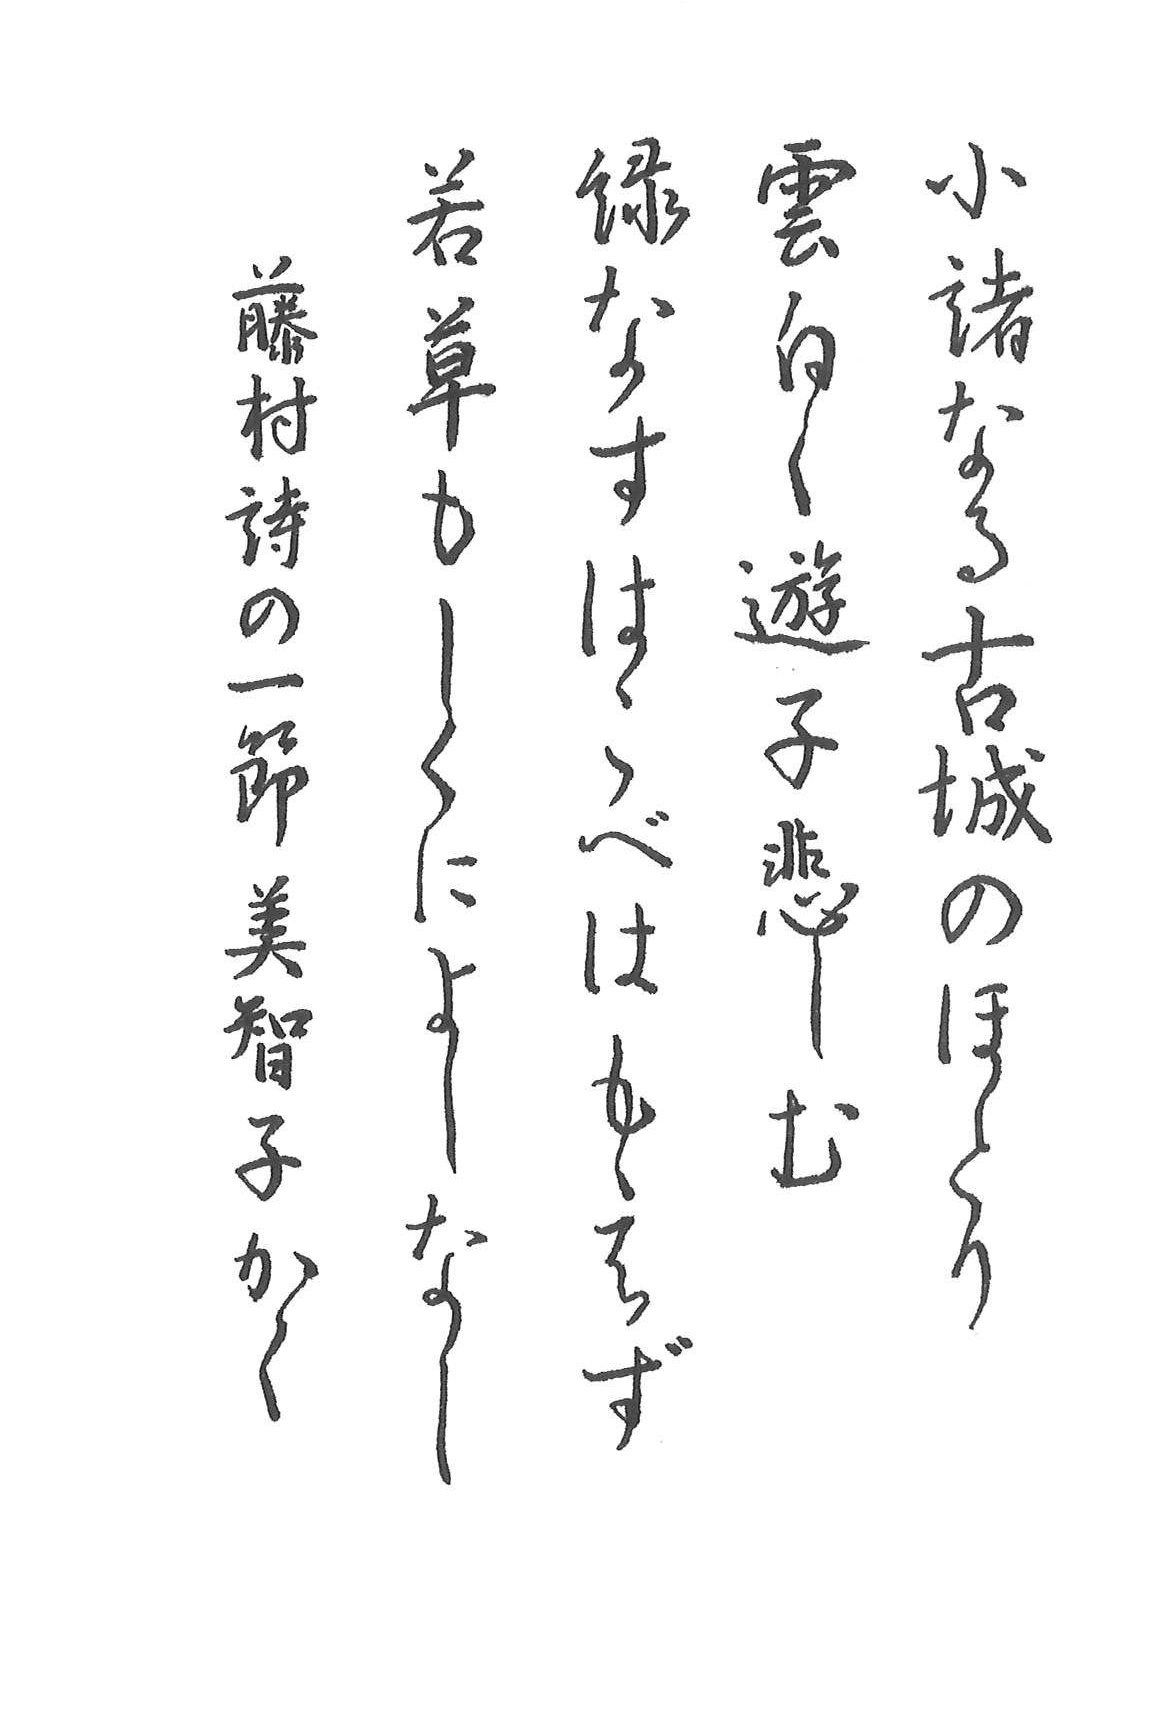 小諸なる古城のほとり
雲白く遊子悲しむ
緑なすはこべはもえず
若草もしくによしなし
藤村詩の一節 美智子かく